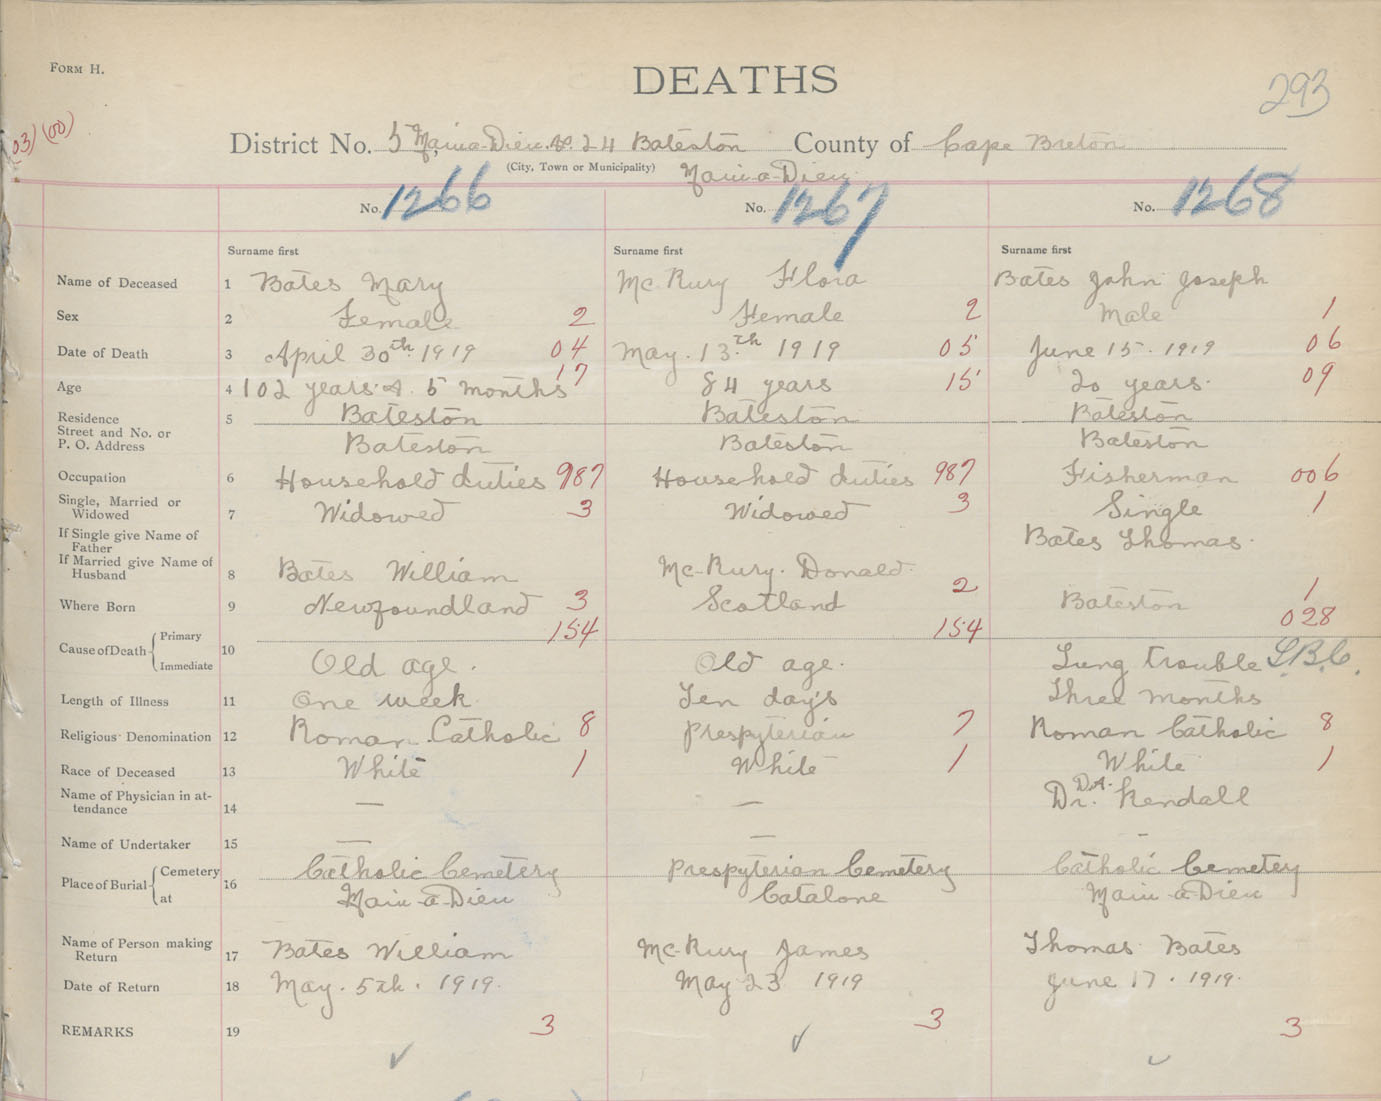 FORM H.
DEATHS
293
03) (00)
District No. 5 Main-a-Dieu. No. 24 Bateston County of Cape Breton
(City, Town or Municipality) Main-a-Dieu
No. 1266 No. 1267 No. 1268
Surname first Surname first Surname first
Name of Deceased 1 Bates Mary Mc Rury Flora Bates John Joseph
Sex 2 Female 2 Female 2 Male 1
Date of Death 3 April 30th 1919 04 May. 13th 1919 05 June 15. 1919 06
Age 4 102 years & 5 months 17 84 years 15 20 years. 09
Residence 5 Bateston Bateston Bateston
Street and No. or
P. O. Address Bateston Bateston Bateston
Occupation 6 Household duties 987 Household duties 987 Fisherman 006
Single, Married or
Widowed 7 Widowed 3 Widowed 3 Single 1
If Single give Name of
Father Bates Thomas.
If Married give Name of
Husband 8 Bates William Mc-Rury. Donald.
Where Born 9 Newfoundland 3 Scotland 2 Bateston 1
Cause of Death Primary 10 154 154 028
Immediate Old age. Old age. Lung trouble L.B.C.
Length of Illness 11 One week. Ten day's Three months
Religious Denomination 12 Roman Catholic 8 Prespyterian 7 Roman Catholic 8
Race of Deceased 13 White 1 White 1 White 1
Name of Physician in at-
tendance 14 — — Dr. D.A. Kendall
Name of Undertaker 15 — — -
Place of Burial Cemetery 16 Catholic Cemetery Prespyterian Cemetery Catholic Cemetery
at Main-a-Dieu Catalone Main-a-Dieu
Name of Person making
Return 17 Bates William Mc-Rury James Thomas Bates
Date of Return 18 May. 5th. 1919. May 23 1919 June 17. 1919.
REMARKS 19 3 3 3
✓ ✓ ✓